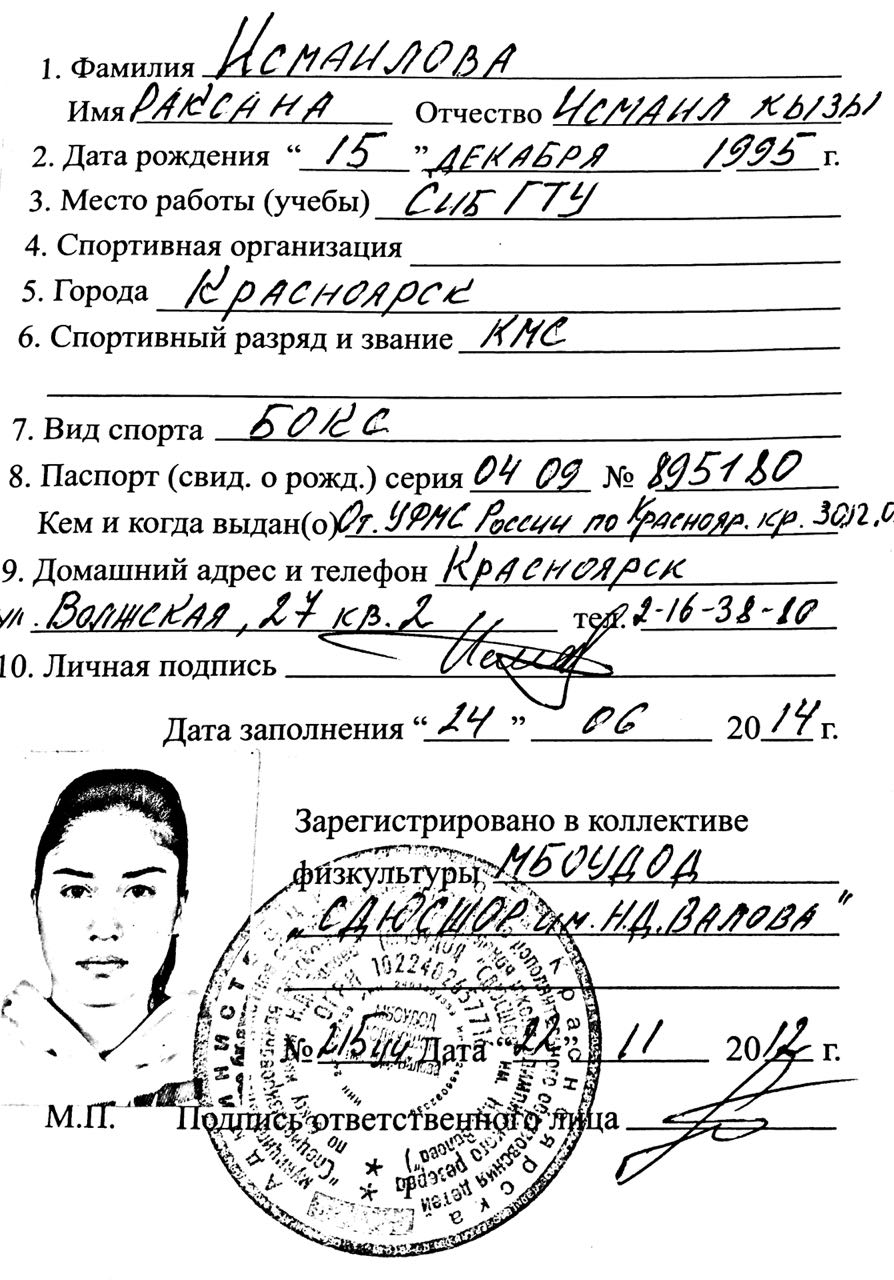 1. Фамилия Исмаилова
Имя Раксана Отчество Исмаил кызы
2. Дата рождения “ 15 ” декабря 1995 г.
3. Место работы (учебы) СибГТУ
4. Спортивная организация
5. Города Красноярск
6. Спортивный разряд и звание КМС
7. Вид спорта БОКС
8. Паспорт (свид. о рожд.) серия 04 09 № 895180
Кем и когда выдан(о) От. УФМС России по Краснояр. кр. 30.12.0
9. Домашний адрес и телефон Красноярск
ул. Волжская, 27 кв. 2 тел. 2-16-38-80
10. Личная подпись
Дата заполнения “ 24 ” 06 2014 г.
Зарегистрировано в коллективе
физкультуры МБОУДОД
„СДЮСШОР им. Н.Д. Валова”
№ 215уч Дата “ 22 „ 11 2012 г.
М.П. Подпись ответственного лица